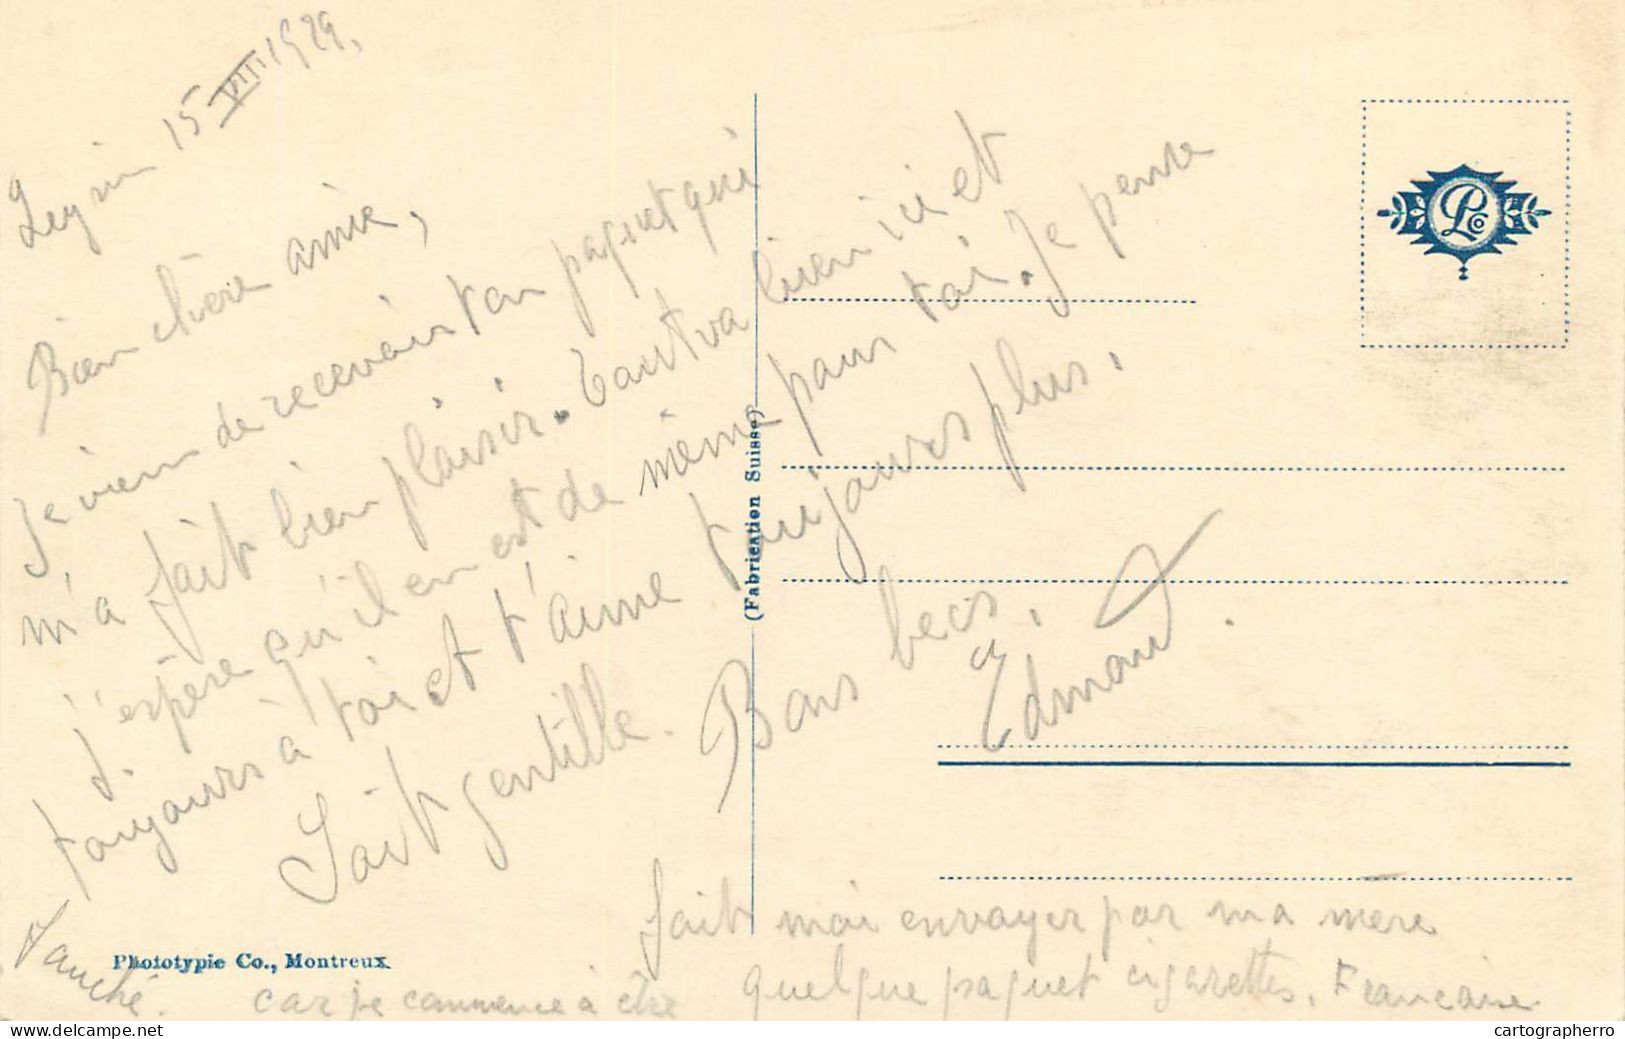 Leysin 15 VIII 1929.
Bien chère amie,
Je viens de recevoir ton paquet qui
m'a fait bien plaisir. Tout va bien ici et
j'espère qu'il en est de même pour toi. Je pense
toujours à toi et t'aime toujours plus.
Soit gentille. Bons becs.
Edmond.
fait moi envoyer par ma mère
quelque paquet cigarettes. Francaise
car je commence à être
fauché.
(Fabrication Suisse)
Phototypie Co., Montreux
PCo
delcampe.net
cartographerro